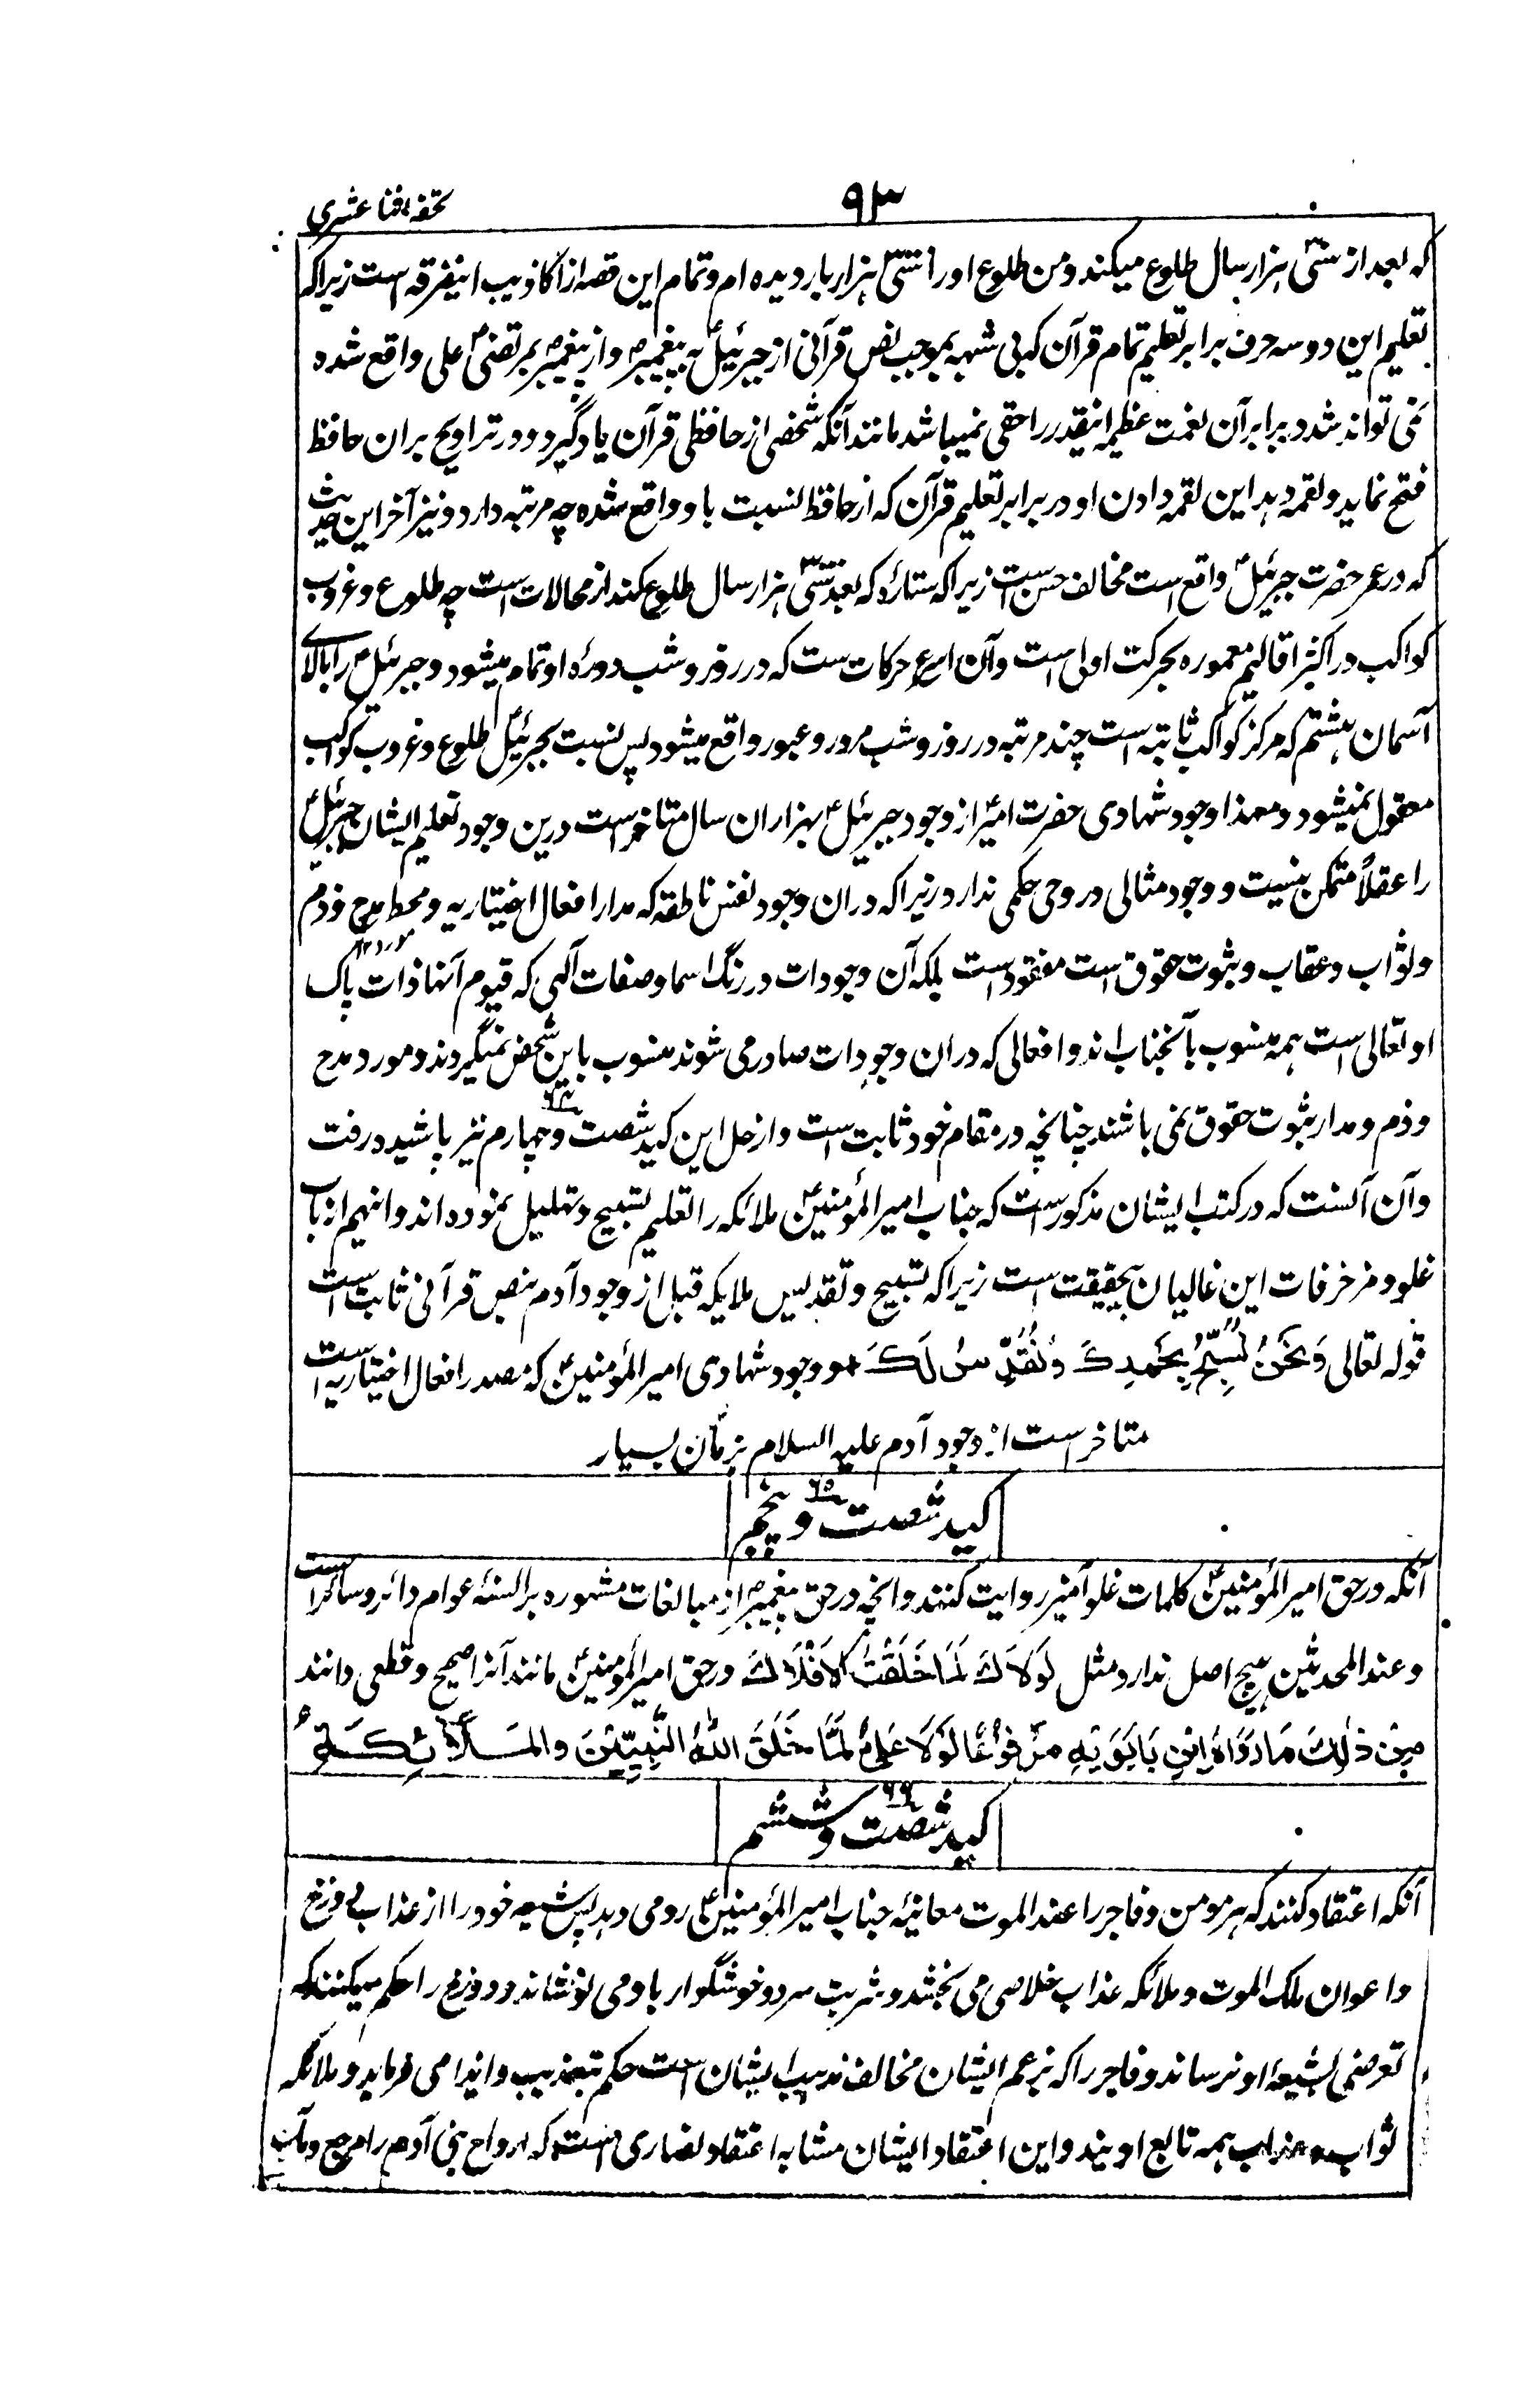 ۹۳ تحفه اثنا عشری
که بعد از سی هزار سال طلوع میکند و من طلوع او را سی هزار بار دیده ام و تمام این قصه از اکاذیب اینفرقه است زیرا که
تعلیم این دو سه حرف برابر تعلیم تمام قرآن که بی شبهه بموجب نص قرآنی از جبرئیلؑ به پیغمبرؐ و از پیغمبرؐ بمرتضیٰؑ علی واقع شده
نمی تواند شد و برابر آن نعمت عظیمه اینقدر را حقی نمیباشد مانند آنکه شخصی از حافظی قرآن یاد گیرد و در تراویح بران حافظ
فتح نماید و لقمه دهد این لقمه دادن او در برابر تعلیم قرآن که از حافظ نسبت باو واقع شده چه مرتبه دارد و نیز آخر این حدیث
که در عمر حضرت جبرئیلؑ واقع است مخالف حس است زیرا که ستارهٔ که بعد سی هزار سال طلوع کند از محالات است چه طلوع و غروب
کواکب در اکثر اقالیم معموره بحرکت اولی است و آن اسرع حرکات ست که در روز و شب دورهٔ او تمام میشود و جبرئیلؑ را بالای
آسمان هشتم که مرکز کواکب ثابته است چند مرتبه در روز و شب مرور و عبور واقع میشود پس نسبت بجبرئیلؑ طلوع و غروب کواکب
معقول نمیشود و معهذا وجود شهادی حضرت امیرؑ از وجود جبرئیلؑ بهزاران سال متاخر است درین وجود تعلیم ایشان جبرئیلؑ
را عقلاً متمکن نیست و وجود مثالی در وحی حکمی ندارد زیرا که دران وجود نفس ناطقه که مدار افعال اختیاریه و محط مدح و ذم
و ثواب و عقاب و ثبوت حقوق است مفقود است بلکه آن وجودات در رنگ اسما و صفات الهی که قیوم آنها ذات پاک
او تعالی است همه منسوب بآنجناب اند و افعالی که دران وجودات صادر می شوند منسوب باین شخص نمیگردند و مورد مدح
و ذم و مدار ثبوت حقوق نمی باشند چنانچه در مقام خود ثابت است و از حل این کید شصت و چهارم ۶۴ نیز پاشیده رفت
و آن آنست که در کتب ایشان مذکور است که جناب امیر المؤمنینؑ ملائکه را تعلیم تسبیح و تهلیل نموده اند و اینهم از باب
غلو و مزخرفات این غالیان بیحقیقت است زیرا که تسبیح و تقدیس ملایکه قبل از وجود آدم بنص قرآنی ثابت است
قوله تعالی وَنَحْنُ نُسَبِّحُ بِحَمْدِكَ وَنُقَدِّسُ لَكَ و وجود شهادی امیر المؤمنینؑ که مصدر افعال اختیاریه است
متاخر است از وجود آدم علیه السلام بزمان بسیار
کید شصت و پنجم ۶۵
آنکه در حق امیر المؤمنینؑ کلمات غلو آمیز روایت کنند و آنچه در حق پیغمبرؐ از مبالغات مشهوره بر السنهٔ عوام دائر و سائر است
و عند المحدثین هیچ اصل ندارد مثل لَوْلَاكَ لَمَا خَلَقْتُ الْاَفْلَاكَ در حق امیر المؤمنینؑ مانند آنرا صحیح و قطعی دانند
مِنْ ذٰلِكَ مَا رَوَاهُ ابْنُ بَابَوَيْهِ مَرْفُوْعًا لَوْلَا عَلِيٌّ لَمَا خَلَقَ اللّٰهُ النَّبِيِّيْنَ وَالْمَلَائِكَةَ
کید شصت و ششم ۶۶
آنکه اعتقاد کنند که هر مومن و فاجر را عند الموت معاینهٔ جناب امیر المؤمنینؑ رو می دهد پس شیعه خود را از عذاب دوزخ
و اعوان ملک الموت و ملائکه عذاب خلاصی می بخشد و شربت سرد و خوشگوار باو می نوشاند و دوزخ را حکم میکنند که
تعرضی بشیعهٔ او نرساند و فاجر را که بزعم ایشان مخالف مذهب ایشان است حکم بتعذیب و ایذا می فرماید و ملائکه
ثواب و عذاب همه تابع اویند و این اعتقاد ایشان مشابه اعتقاد نصاری است که ارواح بنی آدم را مرجع و مآب